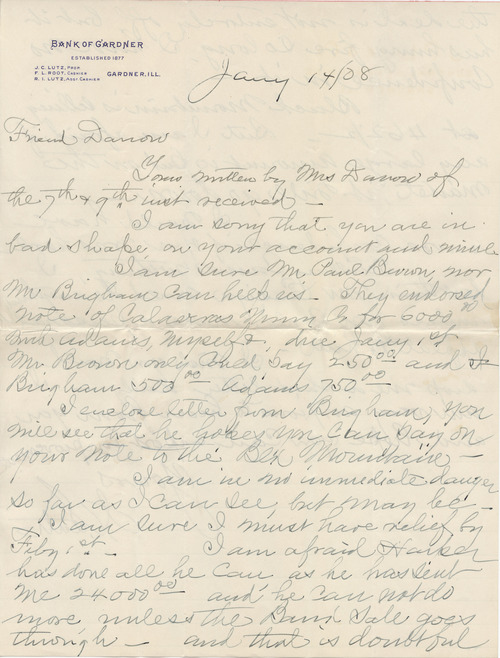 BANK OF GARDNER
ESTABLISHED 1877
J. C. LUTZ, PROP
F. L. ROOT, CASHIER
R. I. LUTZ, ASST CASHIER
GARDNER, ILL.
Jany 14/08
Friend Darrow
Yours written by Mrs Darrow of
the 7th & 9th inst received —
I am sorry that you are in
bad shape on your account and mine
I am sure Mr Paul Brown, nor
Mr Bigham can help us — They endorsed
note of Calaveras Mining Co for 6000 00
with Adams, myself, due Jany 1st
Mr Brown only could pay 250 00 and
Bigham 500 00 Adams 750 00
I enclose letter from Bigham, you
will see that he hopes you can pay on
your note to the Blk Mountain —
I am in no immediate danger
so far as I can see, but may be —
I am sure I must have relief by
Feby 1st — I am afraid
has done all he can, as he has sent
me 24000 00 and he can not do
more unless the Bank Sale goes
through — and that is doubtful